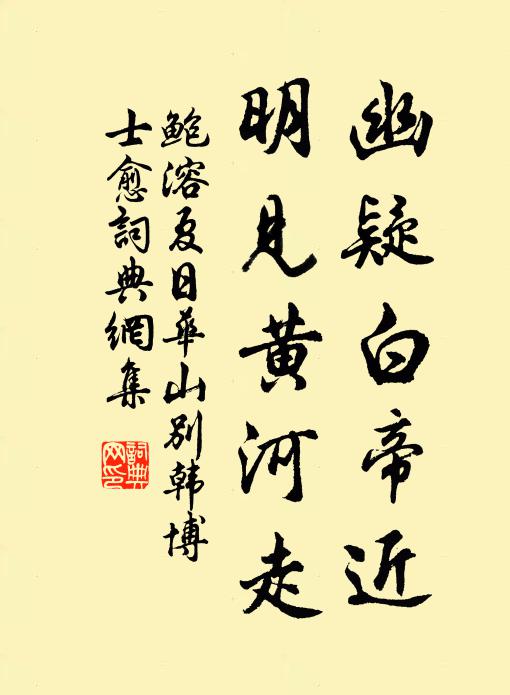 幽疑白帝近
明見黄河走
鲍溶夏日華山别韩博
士愈詞典網集
詞典
网印